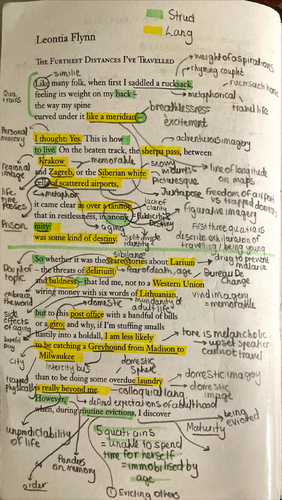 Struct
Lang
Leontia Flynn
THE FURTHEST DISTANCES I'VE TRAVELLED
similie
weight of aspirations
rhyming couplet
Like many folk, when first I saddled a rucksack,
feeling its weight on my back –
the way my spine
curved under it like a meridian –
Qua
trains
metaphorical
rucksack home
travel life
breathlessness
excitement
I thought: Yes. This is how
to live. On the beaten track, the sherpa pass, between
Krakow
and Zagreb, or the Siberian white
cells of scattered airports,
Personal
memory
adventurous imagery
memorable
snowy
wilderness
Picturesque
line of longitude
on maps
regional
image
metaphor
Juxtapose freedom of airport
vs trapped
it came clear as over a tannoy
that in restlessness, in anony
mity:
was some kind of destiny.
life
time
passes
Prison
lack of
clarity
Figurative imagery
aging
split
identity
First three quatrains
describe exhilaration of
travelling / being young
sibilance
So whether it was the scare stories about Larium
– the threats of delirium
and baldness – that led me, not to a Western Union
wiring money with six words of Lithuanian,
drug to prevent
malaria
fear of death, age
Bureau De
Change
vivid imagery
= memorable
domestic
Mundanity of
adult life
but to this post office with a handful of bills
or a giro; and why, if I'm stuffing smalls
hastily into a holdall, I am less likely
to be catching a Greyhound from Madison to
Milwaukee
side
effects of
aging
City
tone is melancholic
→ upset speaker
cannot travel
intercity bus
domestic
sphere
than to be doing some overdue laundry
is really beyond me.
However,
when, during routine evictions, I discover
trapped
physically
domestic imagery
domestic
image
colloquial lang
defined expectations of adulthood
being
evicted
Maturity
unpredictability
of life
order
Ponders
on memory
5 quatrains
= unable to spend
time for herself
= immobilised by
age
① Evicting others